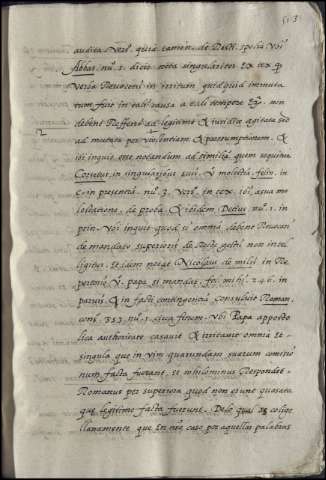 513
audita Vers. quid tamen. de Dolo. speciū Vbi
Abbas nu. 1. dicit nota singulariter
Verba Revocetis in irritum quidquid immuta
tum fuit in tali causa a tali tempore non
debent Referri ad legitime & iuridice agitata sed
2
ad mutata per violentiam & præsumptionem. &
ibi inquit esse notandum ad similia quem sequitur
Corsetus, in singularibus suis. V. molestia. felin. in
c. in præsentia. nu. 3. Vers. in tex. ibi, aqua mo
lestatione. de proba. & ibidem Decius nu. 1. in
prin. Vbi inquit quod si omnia debent Revocari
de mandato superioris de Recte gestis non intel
ligitur. Et idem notat Nicolaus de milis in Re
pertorio V. papa si mandat. fol. mihi. 246. in
paruis. & in facti contingentia Consuluit Roman.
cons. 353 nu. 1. circa finem. Vbi Papa aposto
lica authoritate casauit & irritauit omnia Et
singula que in vim quarundam suarum comissio
num facta fuerant. et nihilominus Respondet
Romanus per superiora quod non essent quasata
que legitime facta fuerunt. De lo qual se colige
llanamente que En este caso por aquellas palabras